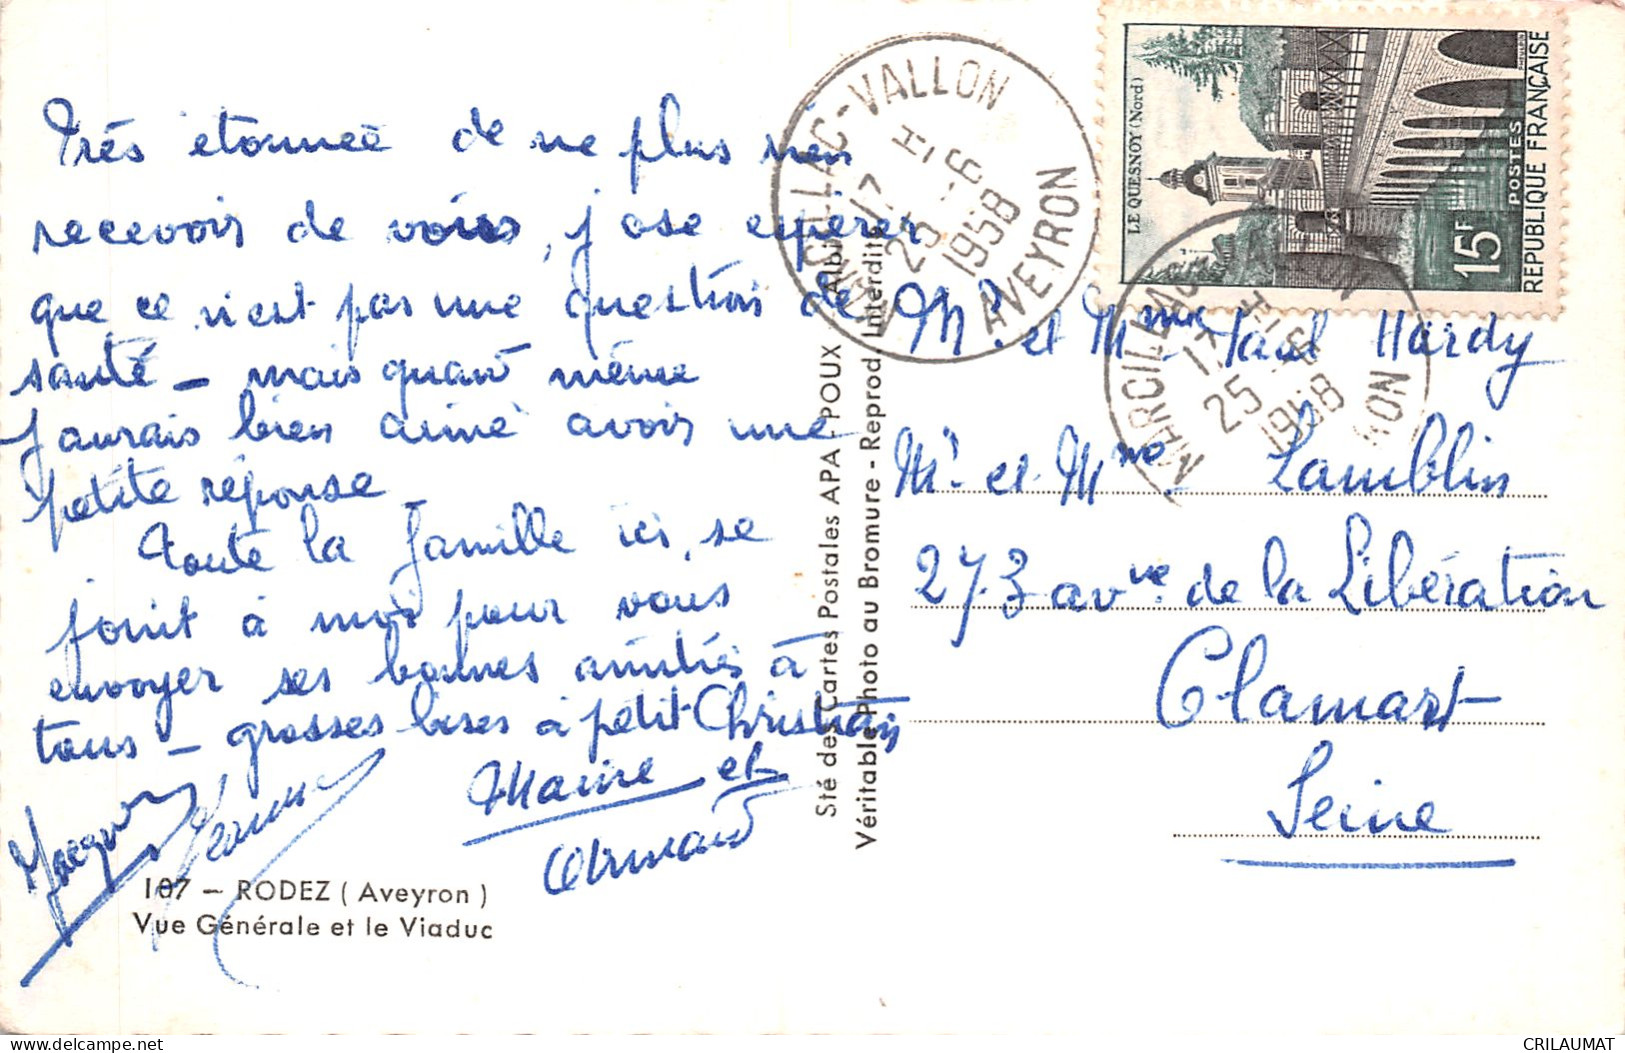 Très étonnée de ne plus rien
recevoir de vous, j'ose espérer
que ce n'est pas une question de
santé - mais quand même
J'aurais bien aimé avoir une
petite réponse
Toute la famille ici, se
joint à moi pour vous
envoyer ses bonnes amitiés à
tous - grosses bises à petit Christian
Jeanne
et
Armand
107 - RODEZ ( Aveyron )
Vue Générale et le Viaduc
Sté des Cartes Postales APA-POUX - Albi
Véritable Photo au Bromure - Reprod. Interdite
MARCILLAC-VALLON
17 H
25 - 6
1958
AVEYRON
LE QUESNOY (Nord)
15F
POSTES
REPUBLIQUE FRANÇAISE
MARCILLAC
17 H
25 - 6
1958
Mr. et Mme Paul Hardy
Mr. et Mme Lamblin
273 avve. de la Libération
Clamart
Seine
CRILAUMAT